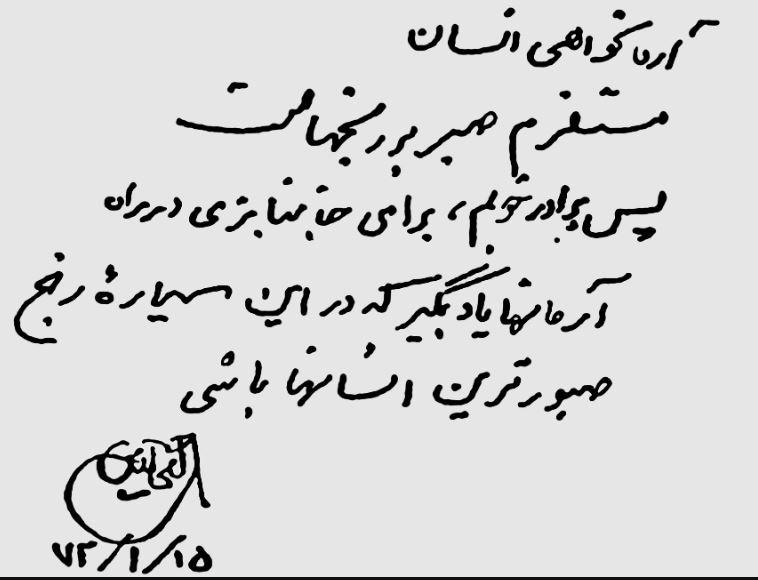 آرمانخواهی انسان
مستلزم صبر بر رنجهاست
پس برادر خوبم، برای جانبازی در راه
آرمانها یاد بگیر که در این سیاره رنج
صبورترین انسانها باشی
۷۲/۱/۱۵